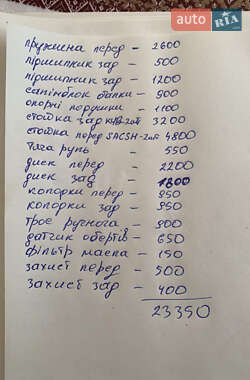 AUTO RIA
пружина перед - 2600
підшипник зад - 500
підшипник зад - 1200
сайлінблок балки - 500
опорні подушки - 1100
стойка зад KYB-2шт 3200
стойка перед SACSH-2шт 4800
тяга руль - 550
диск перед - 2200
диск зад - 1800
колодки перед - 950
колодки зад - 950
трос ручного - 900
датчик обертів - 650
фільтр масла - 150
захист перед - 500
захист зад - 400
23350